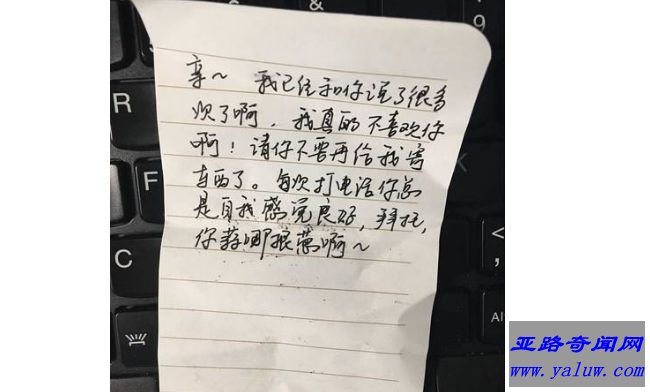 亲~ 我已经和你说了很多
次了啊，我真的不喜欢你
啊！请你不要再给我寄
东西了。每次打电话你总
是自我感觉良好，拜托，
你蒜哪根葱啊~
R
F
C
9
<
,
Alt
亚路奇闻网
www.yaluw.com